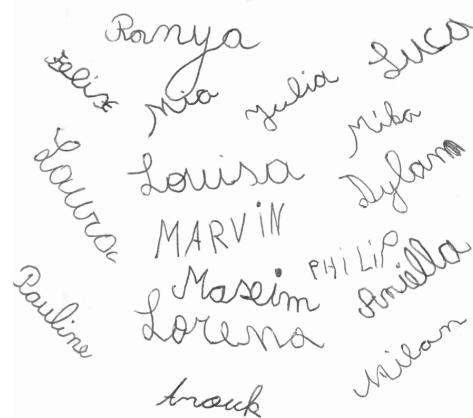 Ranya
Luca
Felix
Mia
Julia
Mika
Laura
Louisa
Dylan
MARVIN
PHILIP
Maxim
Aniella
Pauline
Lorena
Milan
Anouk